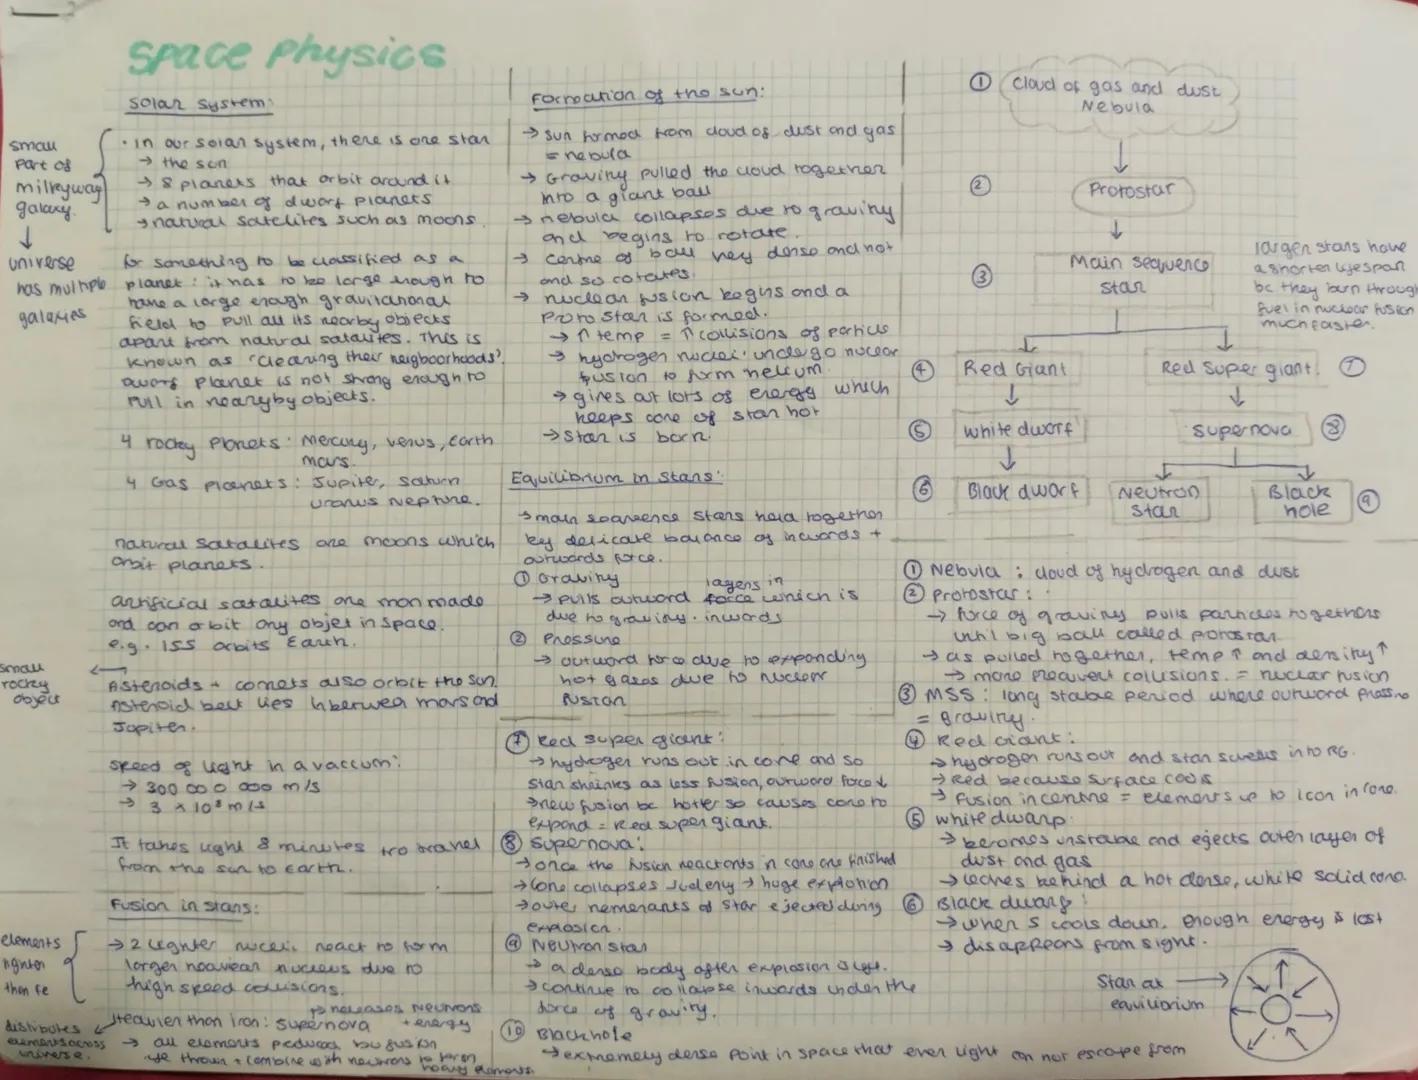 Space Physics
Solar system:
small
part of
milkyway
galaxy.
universe
has multiple
galaxies
· in our solar system, there is one star
→ the sun
→ 8 planets that orbit around it
→ a number of dwarf planets
→ natural satelites such as moons.
for something to be classified as a
planet: it has to be large enough to
have a large enough gravitational
field to pull all its nearby objects
apart from natural satalites. This is
known as 'cleaning their neigboorhoods'.
dwarf planet is not strong enough to
pull in nearyby objects.
4 rocky planets: Mercury, venus, Earth
mars.
4 Gas planets: Jupiter, saturn
uranus Neptune.
natural satalites are moons which
orbit planets.
artificial satalites are man made
and can orbit any objet in space.
e.g. ISS orbits Earth.
small
rocky
object
←
Asteroids + comets also orbit the sun.
Asteroid belt lies inbetween mars and
Jupiter.
speed of light in a vaccum:
→ 300 000 000 m/s
→ 3 x 10⁸ m/s
It takes light 8 minutes to travel
from the sun to Earth.
Fusion in stars:
elements
lighter
than fe
→ 2 lighter nuclei react to form
larger heavier nucleus due to
high speed collisions.
→ releases neutrons
+ energy
Heavier than iron: supernova
distributes
elements across
universe.
→ all elements produced by fusion
are thrown + combine with neutrons to form
heavy elements.
Formation of the sun:
→ sun formed from cloud of dust and gas
= nebula
→ Graviny pulled the cloud together
into a giant ball
→ nebula collapses due to graviny
and begins to rotate.
→ centre of ball very dense and hot
and so rotates.
→ nuclear fusion begins and a
Proto star is formed.
→ ↑ temp = ↑ collisions of particles
→ hydrogen nuclei undergo nuclear
fusion to form helium.
→ gives out lots of energy which
keeps core of star hot
→ Star is born.
Equilibrium in stars:
→ main sequence stars held together
by delicate balance of inwards +
outwards force.
① Graviny
layers in
→ pulls outward force which is
due to graviny. inwards
② Pressure
→ outward force due to expanding
hot gases due to nuclear
fusion
⑦ Red super giant:
→ hydroger runs out in core and so
star shrinks as less fusion, outward force ↓
→ new fusion bc hotter so causes core to
expand = Red super giant.
⑧ Supernova:
→ once the fusion reactants in core are finished
→ core collapses → huge explotion
→ outer of star ejected during
explosion.
⑨ Neutron star
→ a dense body after explosion is left.
→ continue to collapse inwards under the
force of gravity.
⑩ Blackhole
→ extremely dense point in space that even light can not escape from
① Cloud of gas and dust
Nebula
② Protostar
③ Main sequence
star
larger stars have
a shorter lifespan
bc they burn through
fuel in nuclear fusion
much faster.
④ Red Giant
Red super giant. ⑦
⑤ white dwarf
supernova ⑧
⑥ Black dwarf
Neutron
star
Black
hole ⑨
① Nebula: cloud of hydrogen and dust
② Protostar:
→ force of graviny pulls particles togethers
until big ball called protostar
→ as pulled together, temp ↑ and density ↑
→ more frequent collusions. = nuclear fusion
③ MSS: long stable period where outward pressure
= graviny.
④ Red Giant:
→ hydrogen runs out and star swells into RG.
→ Red because surface cools
→ fusion in centre = elements up to icon in core.
⑤ white dwarp:
→ becomes unstable and ejects outer layer of
dust and gas
→ leaves behind a hot dense, white solid core
⑥ Black dwarf:
→ when 5 cools down, enough energy is lost
→ disappears from sight.
Star at
equilibrium